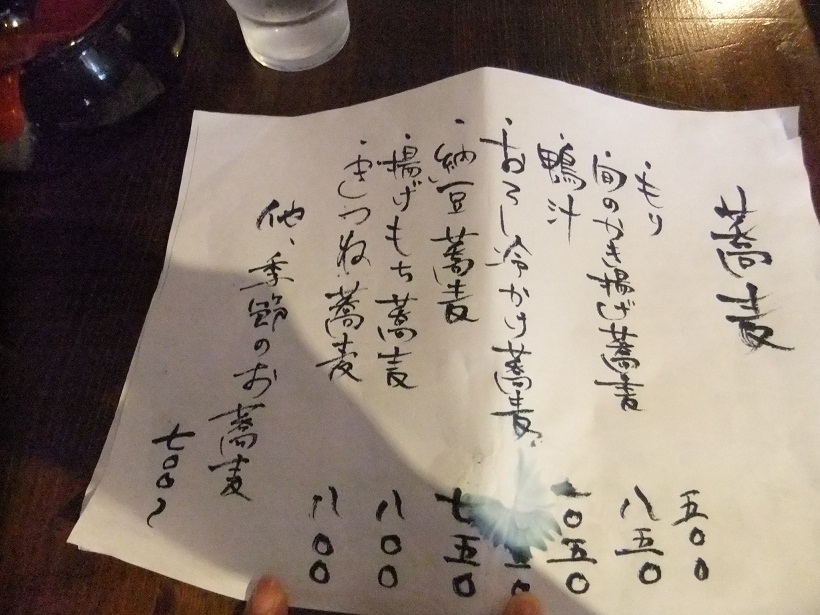 蕎麦
・もり 五〇〇
・旬のかき揚げ蕎麦 八五〇
・鴨汁 一〇五〇
・おろし冷かけ蕎麦
・納豆蕎麦 七五〇
・揚げもち蕎麦 八〇〇
・きつね蕎麦 八〇〇
他、季節のお蕎麦
七〇〇〜